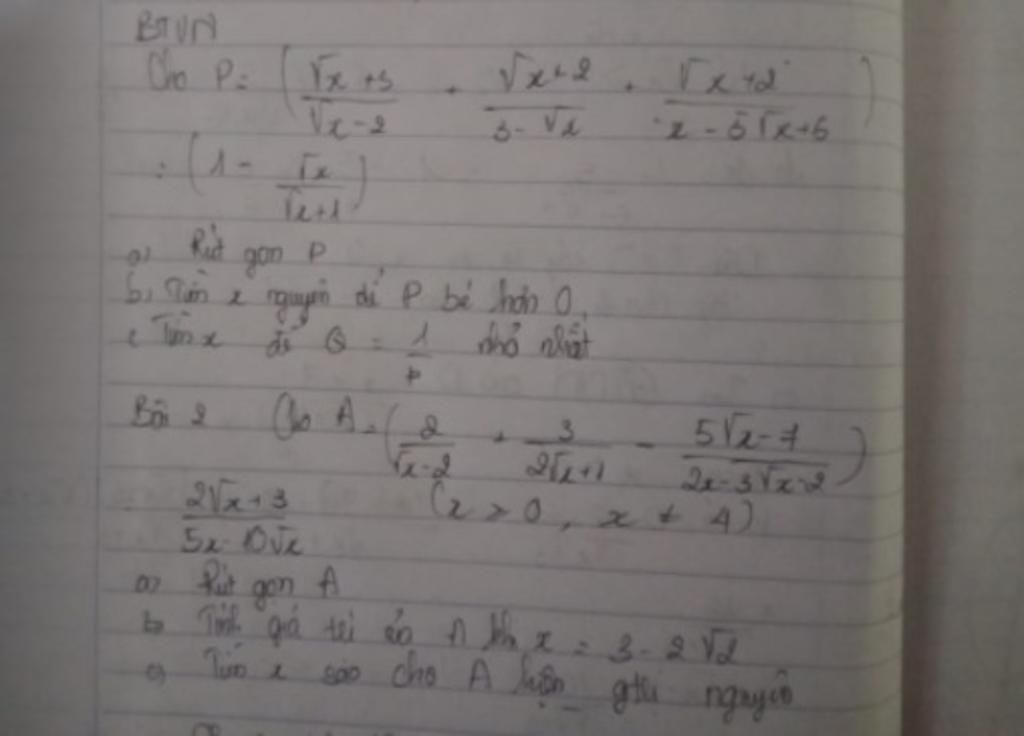 BTVN
Cho P = ( (√x+3)/(√x-2) + (√x+2)/(3-√x) + (√x+2)/(x-5√x+6) )
: ( 1 - √x/(√x+1) )
a) Rút gọn P
b) Tìm x nguyên để P bé hơn 0
c Tìm x để Q = 1/P nhỏ nhất
Bài 2 Cho A = ( 2/(√x-2) + 3/(2√x+1) - (5√x-7)/(2x-3√x-2) )
: (2√x+3)/(5x-10√x) (x > 0, x ≠ 4)
a) Rút gọn A
b Tính giá trị của A khi x = 3-2√2
c) Tìm x sao cho A nguyên